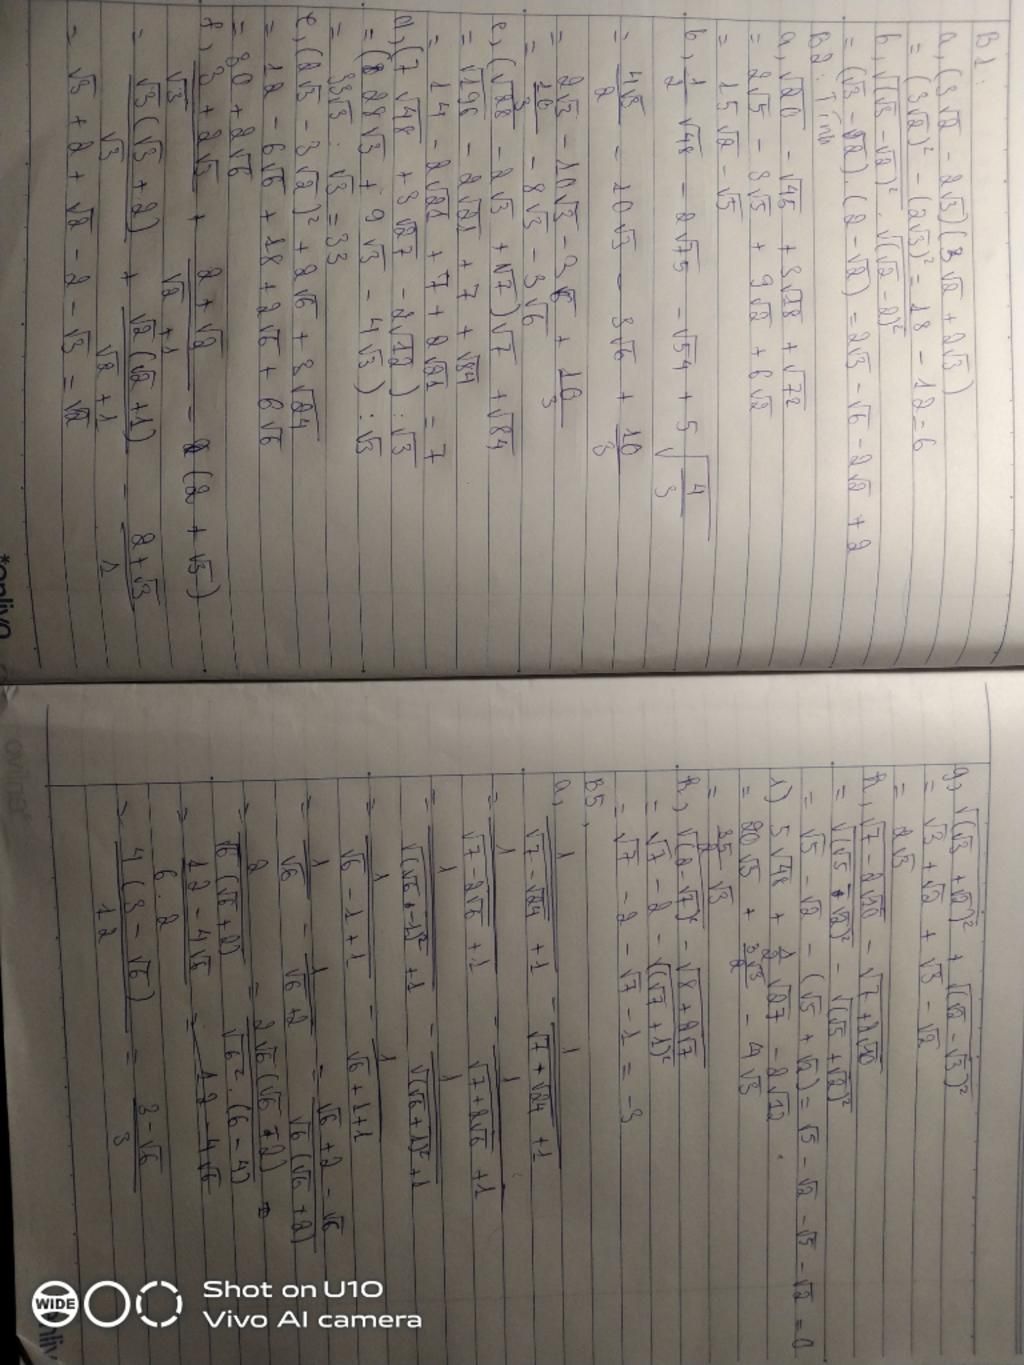 B1:
a, (3√2 - 2√3)(3√2 + 2√3)
= (3√2)² - (2√3)² = 18 - 12 = 6
b, √(√3 - √2)² . √(√2 - 2)²
= (√3 - √2) . (2 - √2) = 2√3 - √6 - 2√2 + 2
B2: Tính
a, √20 - √45 + 3√18 + √72
= 2√5 - 3√5 + 9√2 + 6√2
= 15√2 - √5
b, 1/2 √48 - 2√75 - √54 + 5√(4/3)
= 4√3/2 - 10√3 - 3√6 + 10/3
= 2√3 - 10√3 - 3√6 + 10/3
= 10/3 - 8√3 - 3√6
c, (√28 - 2√3 + √7)√7 + √84
= √196 - 2√21 + 7 + √84
= 14 - 2√21 + 7 + 2√21 = 7
d, (7√48 + 3√27 - 2√12) : √3
= (28√3 + 9√3 - 4√3) : √3
= 33√3 : √3 = 33
e, (2√3 - 3√2)² + 2√6 + 3√24
= 12 - 6√6 + 18 + 2√6 + 6√6
= 30 + 2√6
f, (3 + 2√3)/√3 + (2 + √2)/(√2 + 1) - (2 + √3)
= √3(√3 + 2)/√3 + √2(√2 + 1)/(√2 + 1) - (2 + √3)/1
= √3 + 2 + √2 - 2 - √3 = √2
*onlivo
g, √(√3 + √2)² + √(√2 - √3)²
= √3 + √2 + √3 - √2
= 2√3
h, √(7 - 2√10) - √(7 + 2√10)
= √(√5 - √2)² - √(√5 + √2)²
= √5 - √2 - (√5 + √2) = √5 - √2 - √5 - √2 = 0
i) 5√48 + 1/2 √27 - 2√12
= 20√3 + 3√3/2 - 4√3
= 35/2 √3
k, √(2 - √7)² - √(8 + 2√7)
= √7 - 2 - √(√7 + 1)²
= √7 - 2 - √7 - 1 = -3
B5,
a, 1/(√(7 - √24) + 1) - 1/(√(7 + √24) + 1)
= 1/(√(7 - 2√6) + 1) - 1/(√(7 + 2√6) + 1)
= 1/(√(√6 - 1)² + 1) - 1/(√(√6 + 1)² + 1)
= 1/(√6 - 1 + 1) - 1/(√6 + 1 + 1)
= 1/√6 - 1/(√6 + 2) = (√6 + 2 - √6)/(√6(√6 + 2))
= 2/(√6(√6 + 2)) = 2√6(√6 - 2)/(√6² . (6 - 4)) =
= (12 - 4√6)/(6 . 2) = (12 - 4√6)/12
= 4(3 - √6)/12 = (3 - √6)/3
WIDE
Shot on U10
Vivo AI camera